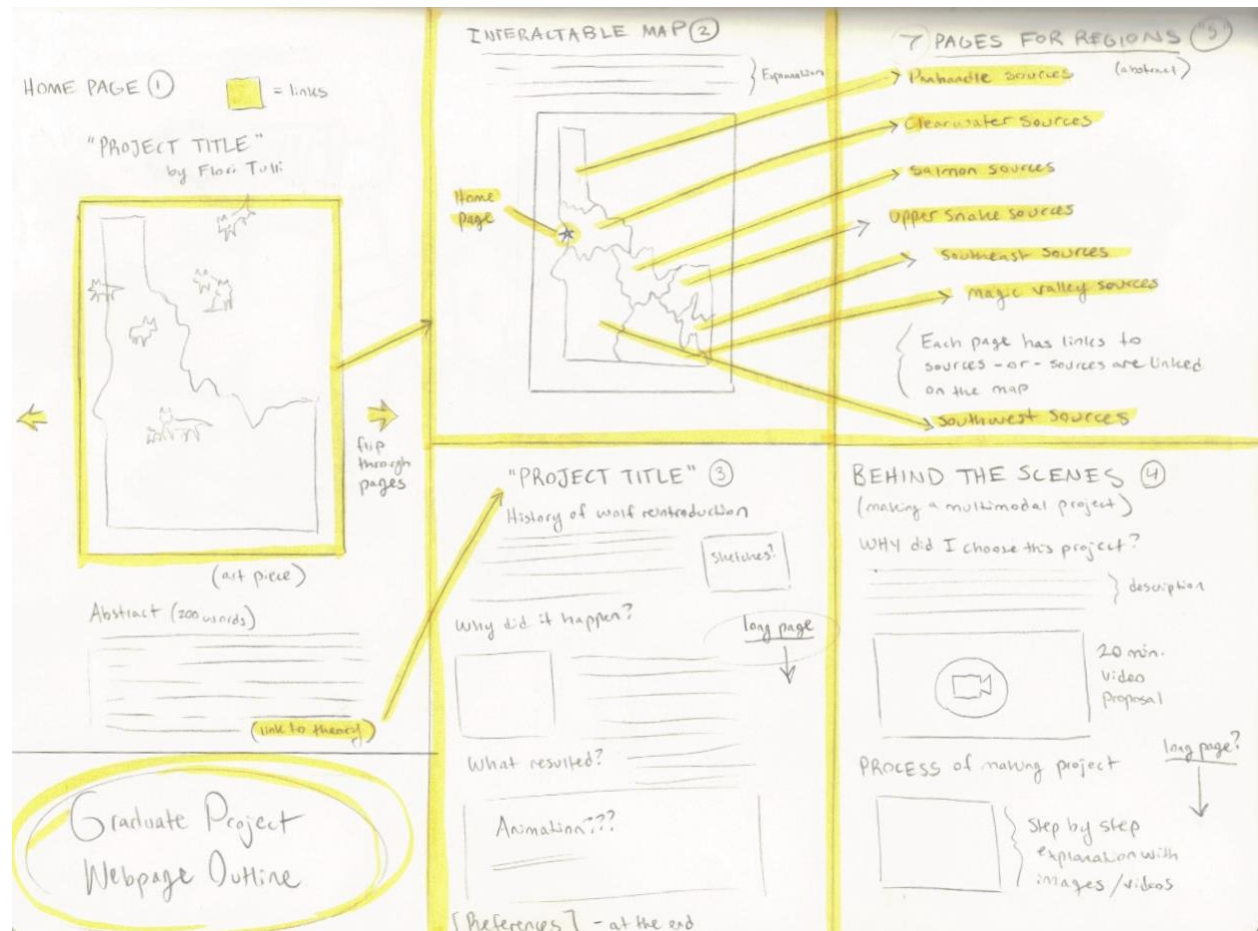 HOME PAGE ①
= links
"PROJECT TITLE"
by Flori Tulli
flip
through
pages
(art piece)
Abstract (200 words)
(link to theory)
Graduate Project
Webpage Outline
INTERACTABLE MAP ②
Explanation
Home
page
7 PAGES FOR REGIONS "5"
(abstract)
Panhandle sources
Clearwater sources
Salmon sources
Upper Snake sources
Southeast sources
magic valley sources
Each page has links to
sources -or- sources are linked
on the map
Southwest sources
"PROJECT TITLE" ③
History of wolf reintroduction
sketches?
Why did it happen?
long page
What resulted?
Animation???
[References] - at the end
BEHIND THE SCENES ④
(making a multimodal project)
WHY did I choose this project?
description
20 min.
video
proposal
long page?
PROCESS of making project
Step by step
explanation with
images/videos